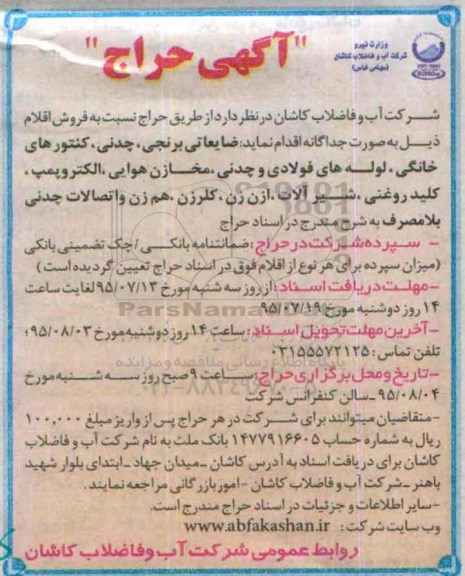 وزارت نیرو
شرکت آب و فاضلاب کاشان
(سهامی خاص)
"آگهی حراج"
شرکت آب و فاضلاب کاشان در نظر دارد از طریق حراج نسبت به فروش اقلام
ذیل به صورت جداگانه اقدام نماید: ضایعاتی برنجی، چدنی، کنتور های
خانگی، لوله های فولادی و چدنی، مخازن هوایی، الکتروپمپ،
کلید روغنی، شیر آلات، ازن زن، کلرزن، هم زن واتصالات چدنی
بلامصرف به شرح مندرج در اسناد حراج
- سپرده شرکت در حراج: ضمانتنامه بانکی / چک تضمینی بانکی
(میزان سپرده برای هر نوع از اقلام فوق در اسناد حراج تعیین گردیده است)
-مهلت دریافت اسناد: از روز سه شنبه مورخ ۹۵/۰۷/۱۳ لغایت ساعت
۱۴ روز دوشنبه مورخ ۹۵/۰۷/۱۹
-آخرین مهلت تحویل اسناد: ساعت ۱۴ روز دوشنبه مورخ ۹۵/۰۸/۰۳؛
تلفن تماس: ۰۳۱۵۵۵۷۲۱۲۵
-تاریخ و محل برگزاری حراج: ساعت ۹ صبح روز سه شنبه مورخ
۹۵/۰۸/۰۴ـ سالن کنفرانس شرکت
-متقاضیان میتوانند برای شرکت در هر حراج پس از واریز مبلغ ۱۰۰,۰۰۰
ریال به شماره حساب ۱۴۷۷۹۱۶۶۰۵ بانک ملت به نام شرکت آب و فاضلاب
کاشان برای دریافت اسناد به آدرس کاشان ـ میدان جهاد ـ ابتدای بلوار شهید
باهنر ـ شرکت آب و فاضلاب کاشان - امور بازرگانی مراجعه نمایند.
-سایر اطلاعات و جزئیات در اسناد حراج مندرج است.
وب سایت شرکت: www.abfakashan.ir
روابط عمومی شرکت آب و فاضلاب کاشان
ParsNamadData
پایگاه اطلاع رسانی مناقصه و مزایده